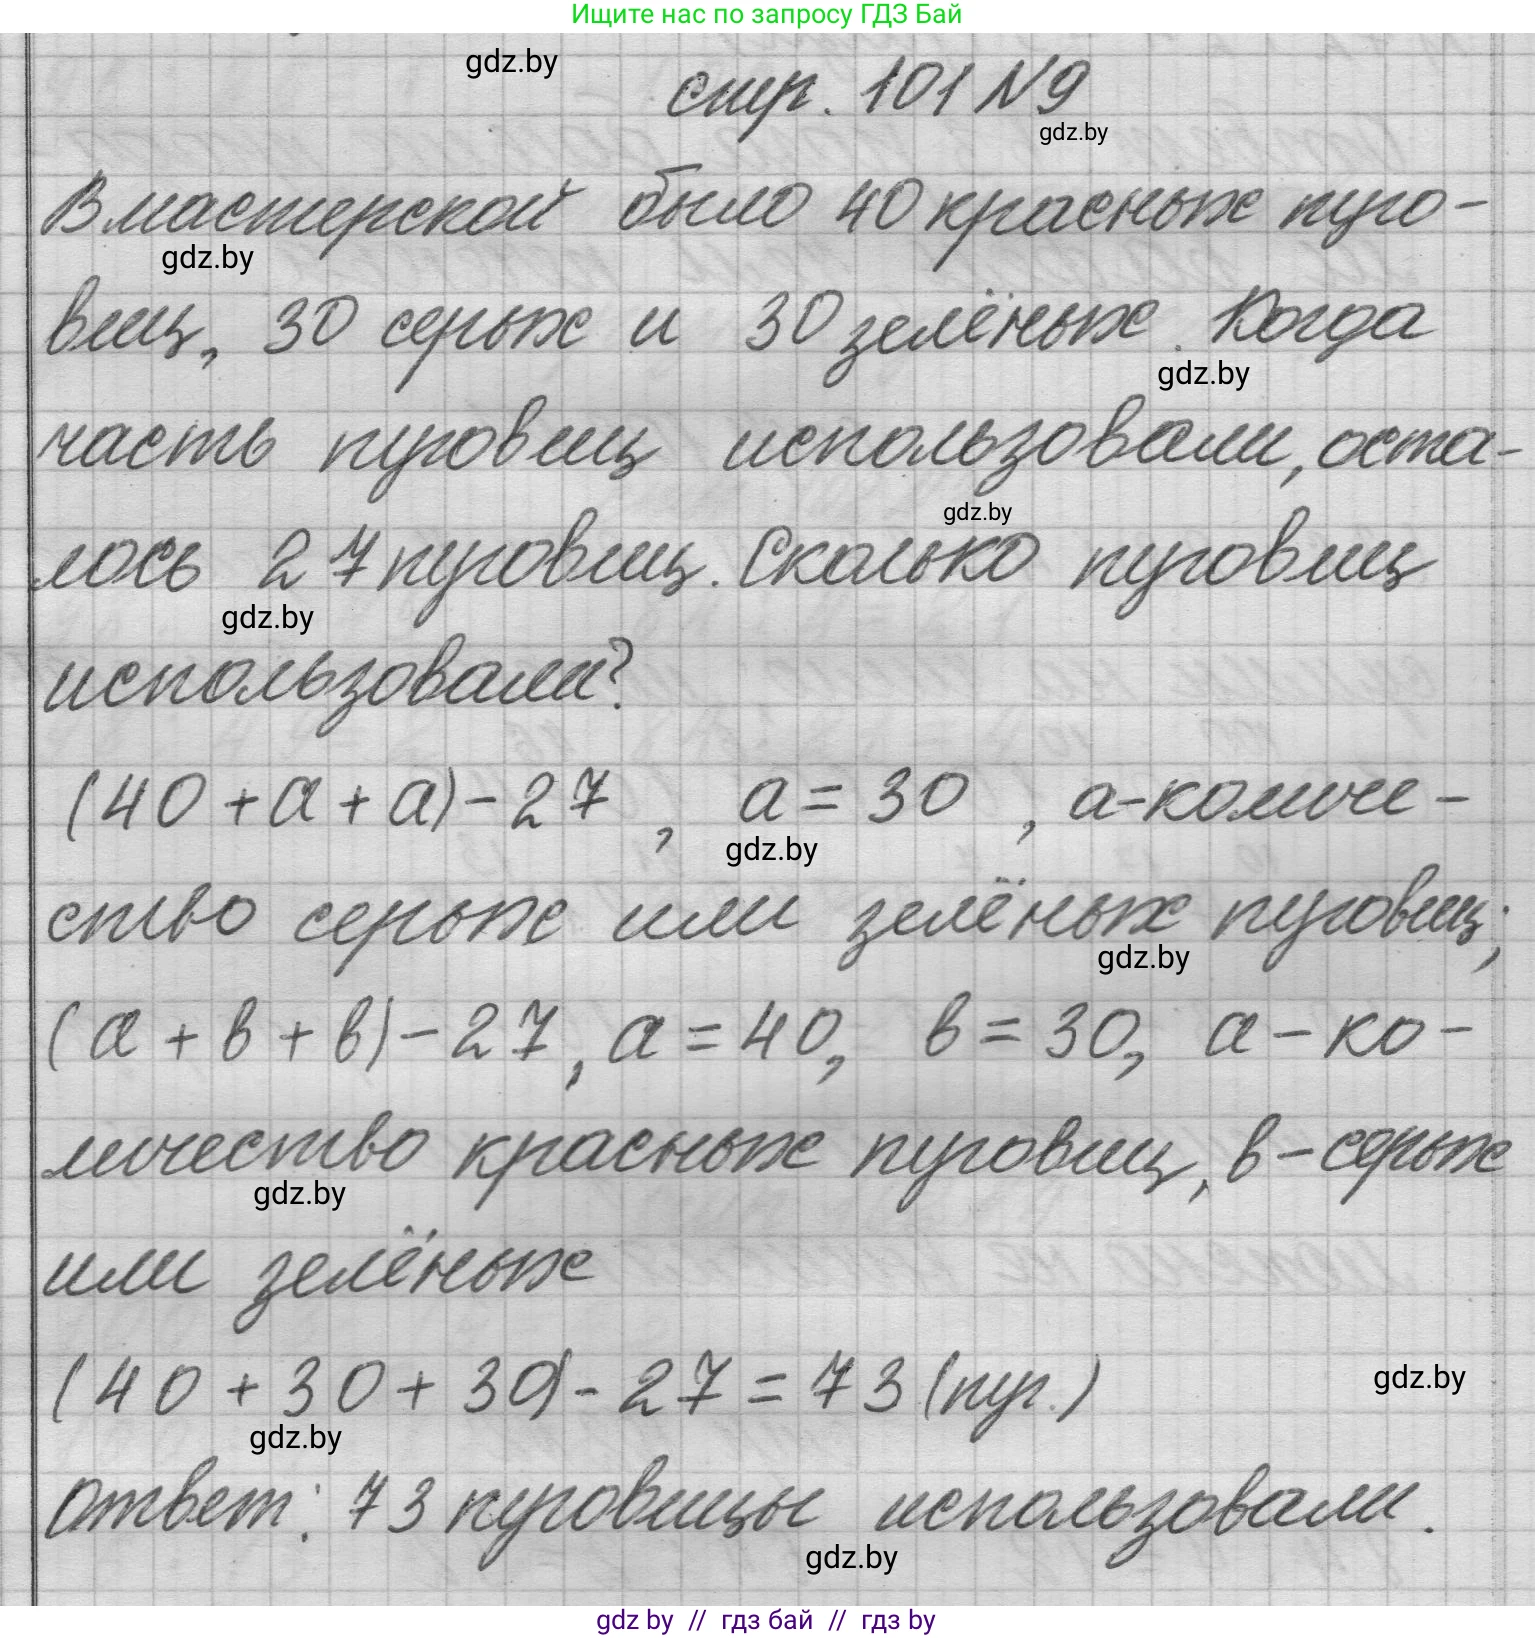 Ищите нас по запросу ГДЗ Бай
gdz.by
стр. 101 N9
gdz.by
В мастерской было 40 красных пуго-
gdz.by
виц, 30 серых и 30 зелёных. Когда
gdz.by
часть пуговиц использовали, оста-
gdz.by
лось 27 пуговиц. Сколько пуговиц
gdz.by
использовали?
(40 + а + а) - 27 , а = 30 , а - количе-
gdz.by
ство серых или зелёных пуговиц;
gdz.by
(а + в + в) - 27, а = 40, в = 30, а - ко-
личество красных пуговиц, в - серых
gdz.by
или зелёных
(40 + 30 + 30) - 27 = 73 (пуг.)
gdz.by
gdz.by
Ответ: 73 пуговицы использовали.
gdz.by
gdz by // гдз бай // гдз by